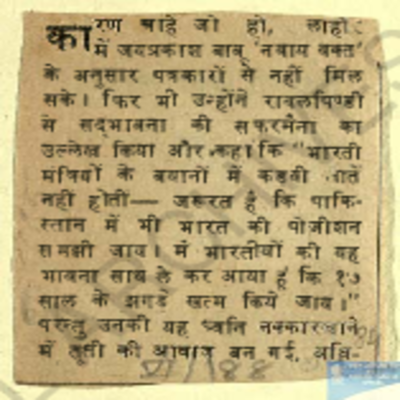 कारण चाहे जो हो, लाहौर
में जयप्रकाश बाबू 'नवाय वक्त'
के अनुसार पत्रकारों से नहीं मिल
सके। फिर भी उन्होंने रावलपिण्डी
से सद्भावना की सफरमैना का
उल्लेख किया और कहा कि "भारती
मंत्रियों के बयानों में कड़वी बातें
नहीं होतीं— जरूरत है कि पाकि-
स्तान में भी भारत की पोजीशन
समझी जाय। मैं भारतीयों की यह
भावना साथ ले कर आया हूँ कि १७
साल के झगड़े खत्म किये जाय।"
परन्तु उनकी यह ध्वनि नक्कारखाने
में तूती की आवाज बन गई,